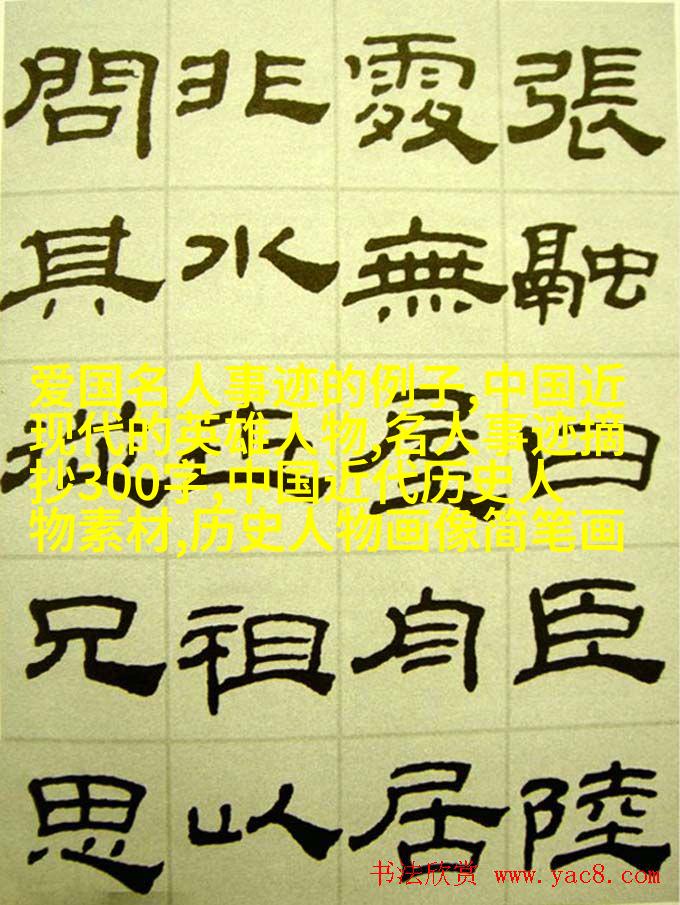 張融白臣陸
處無屋舟居
非水祖以
問其從兄思
爱国名人事迹的例子,中国近
现代的英雄人物,名人事迹摘
抄300字,中国近代历史人
物素材,历史人物画像简笔画
书法欣赏 www.yac8.com